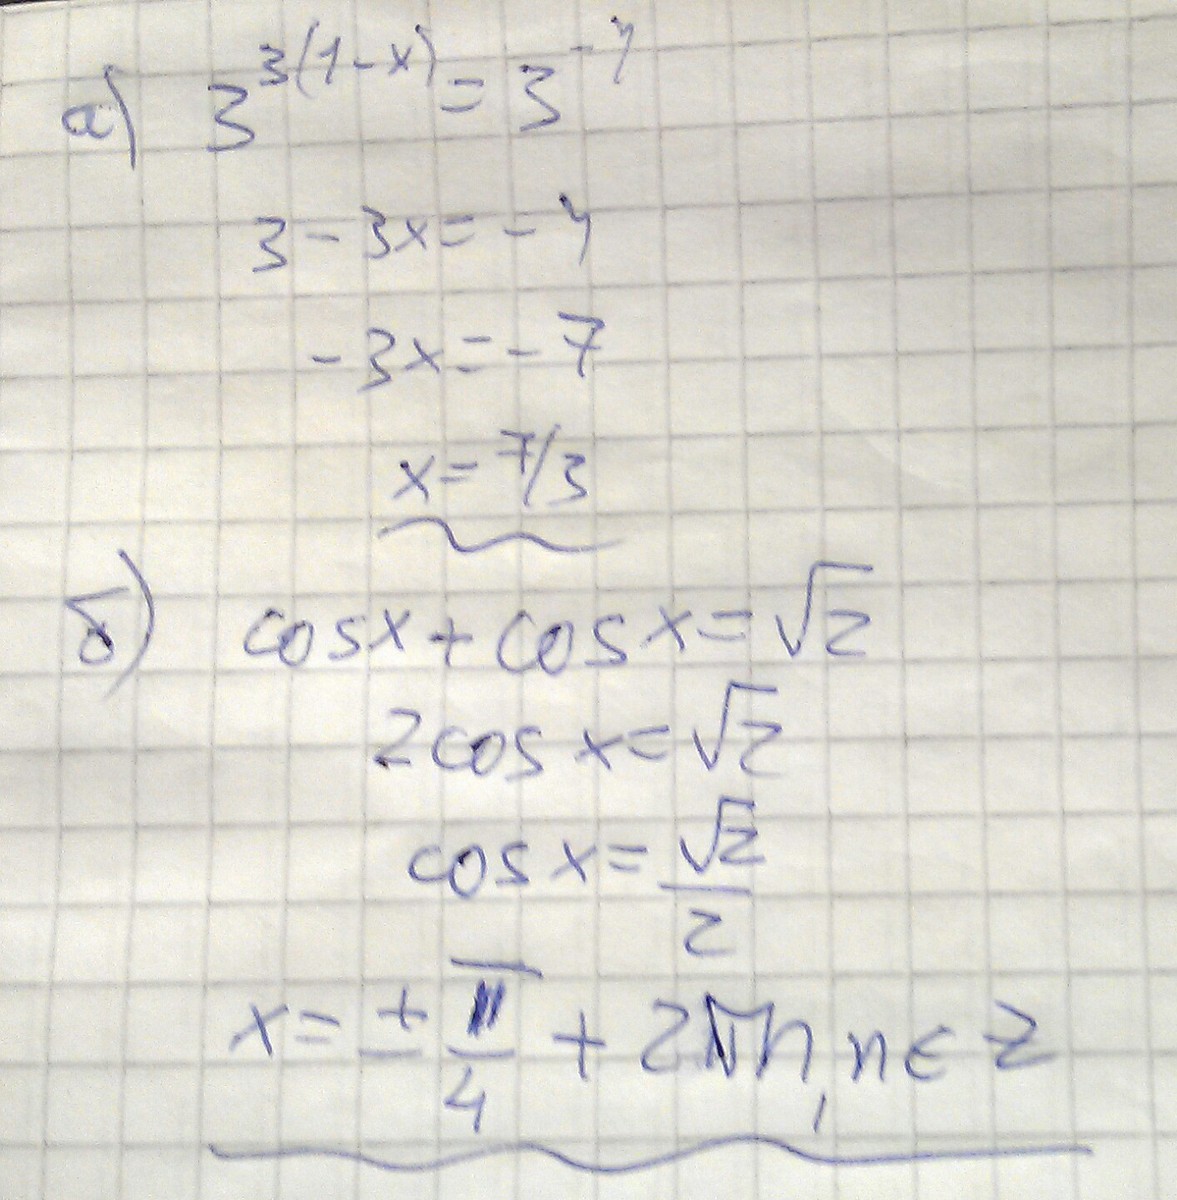 а) 3^{3(1-x)} = 3^{-4}
3 - 3x = - 4
- 3x = - 7
x = 7/3
б) cos x + cos x = √2
2 cos x = √2
cos x = √2/2
x = ± π/4 + 2πn, n ∈ Z